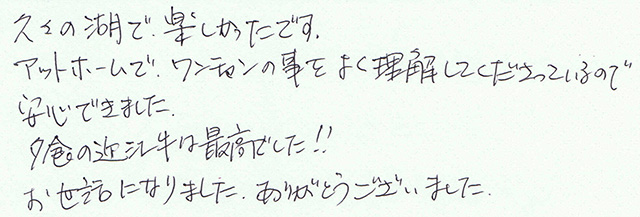 久々の湖で、楽しかったです。
アットホームで、ワンチャンの事をよく理解してくださっているので
安心できました。
夕食の近江牛は最高でした!!
お世話になりました。ありがとうございました。